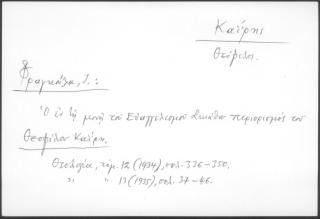 Καΐρης
Θεόφιλος.
Φραγκούλα, Ι. :
Ὁ ἐν τῇ μονῇ τοῦ Εὐαγγελισμοῦ Σκιάθου περιορισμός τοῦ
Θεοφίλου Καΐρη.
Θεολογία, τόμ. 12 (1934), σελ. 336-350.
" " 13 (1935), σελ. 37-46.